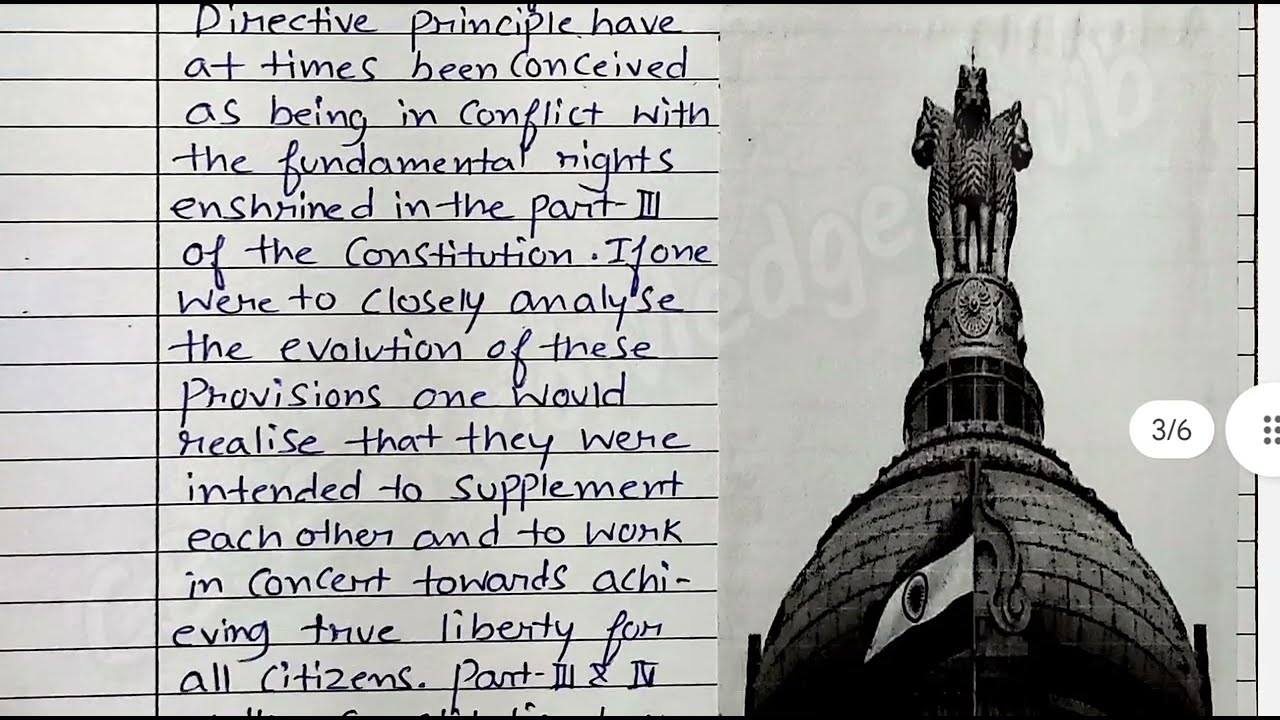 Directive principle have
at times been conceived
as being in conflict with
the fundamental rights
enshrined in the part-III
of the Constitution. If one
were to closely analyse
the evolution of these
provisions one would
realise that they were
intended to supplement
each other and to work
in concert towards achi-
eving true liberty for
all citizens. Part-III & IV
3/6